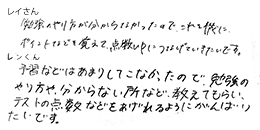 レイさん
勉強のやり方が分からなかったので、これを機に、
ポイントなどを覚えて、点数UPにつなげていきたいです。
レンくん
予習などはあまりしてこなかったので勉強の
やり方や、分からない所など、教えてもらい、
テストの点数などをあげれるようにがんばり
たいです。